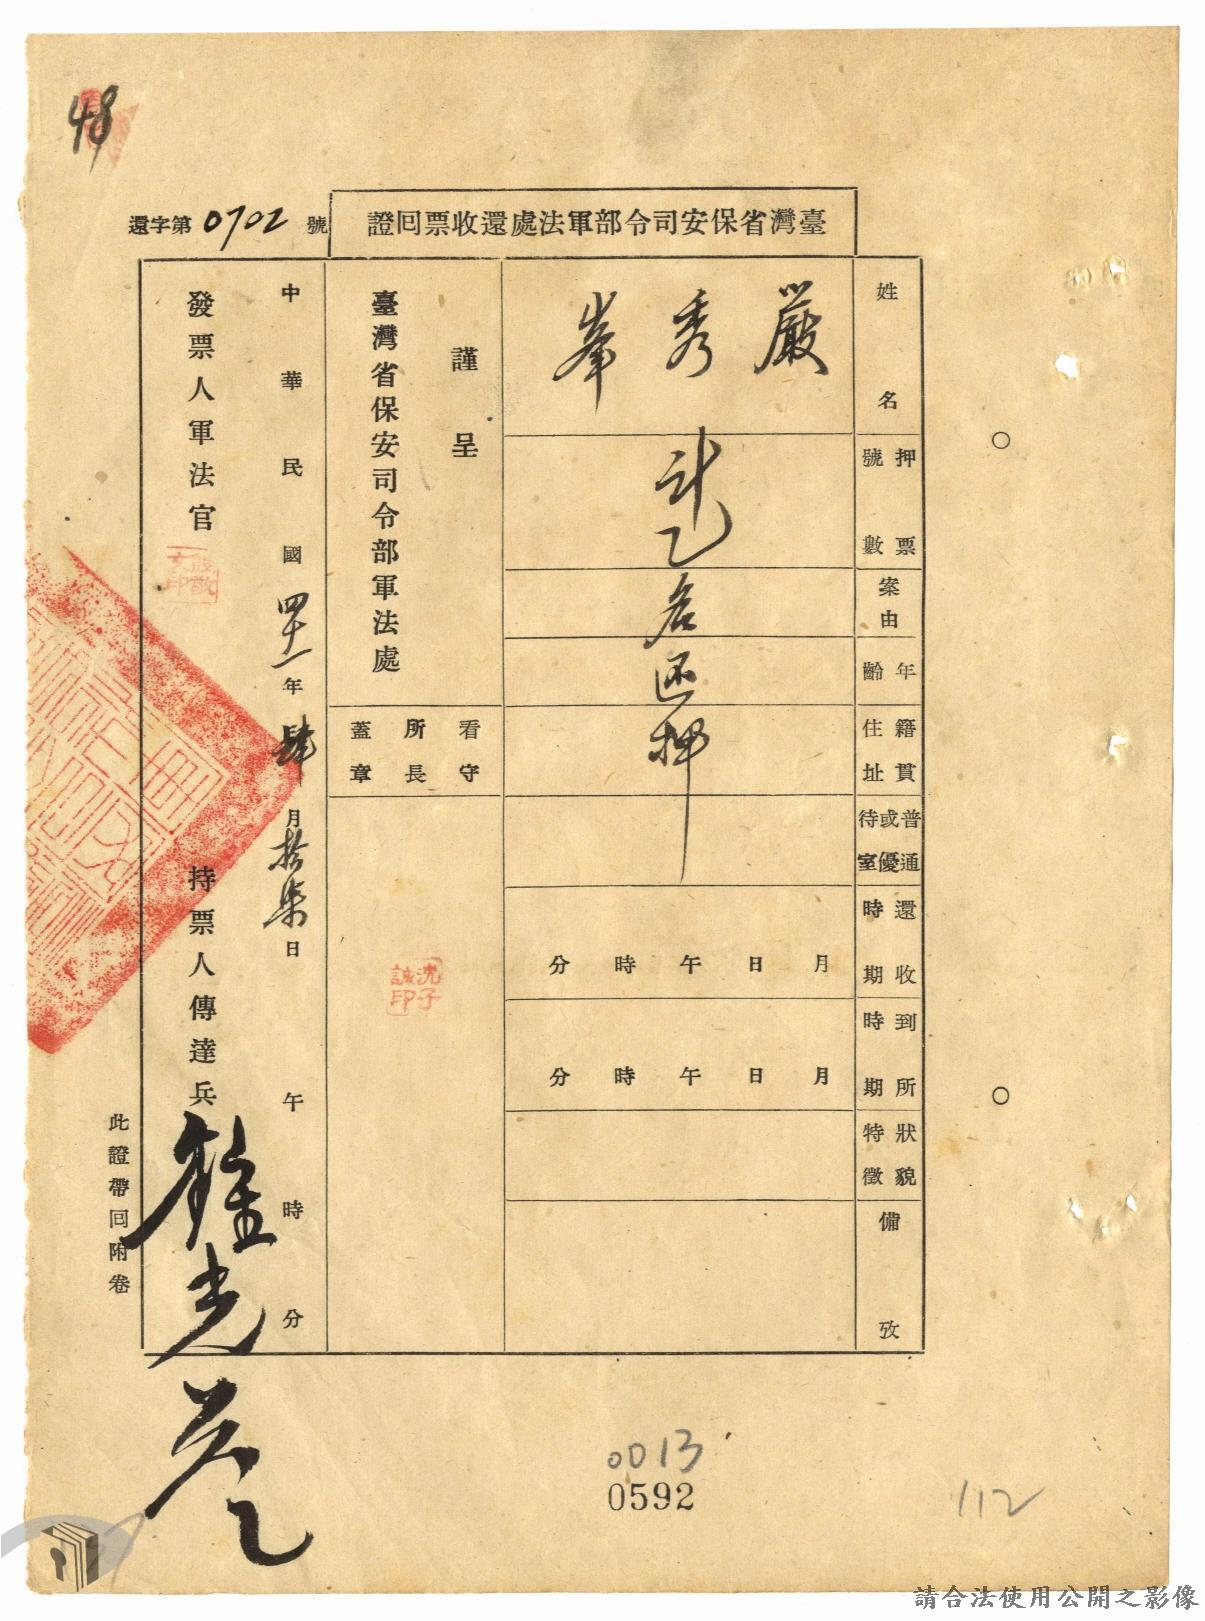 48
臺灣省保安司令部軍法處還收票回證
還字第0702號
姓名
嚴秀峯
押票號數
案由
年齡
籍貫住址
普通或優待室
還收時期
月日午時分
到所時期
月日午時分
狀貌特徵
備攷
計乙名還押
謹呈
臺灣省保安司令部軍法處
看守所長蓋章
沈子誠印
中華民國四十一年肆月拾柒日午時分
發票人軍法官
殷敬文印
持票人傳達兵
此證帶回附卷
0013
0592
112
請合法使用公開之影像